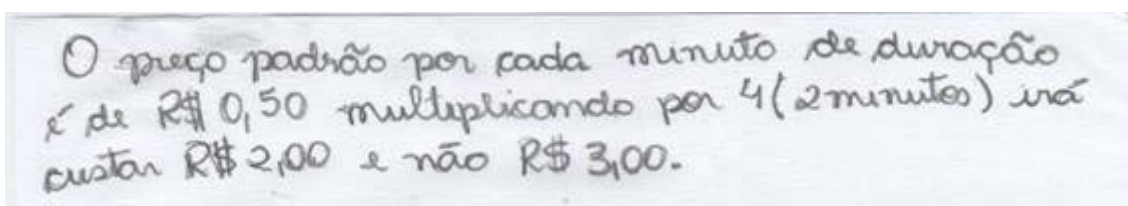 O preço padrão por cada minuto de duração
é de R$ 0,50 multiplicando por 4 (2 minutos) irá
custar R$ 2,00 e não R$ 3,00.